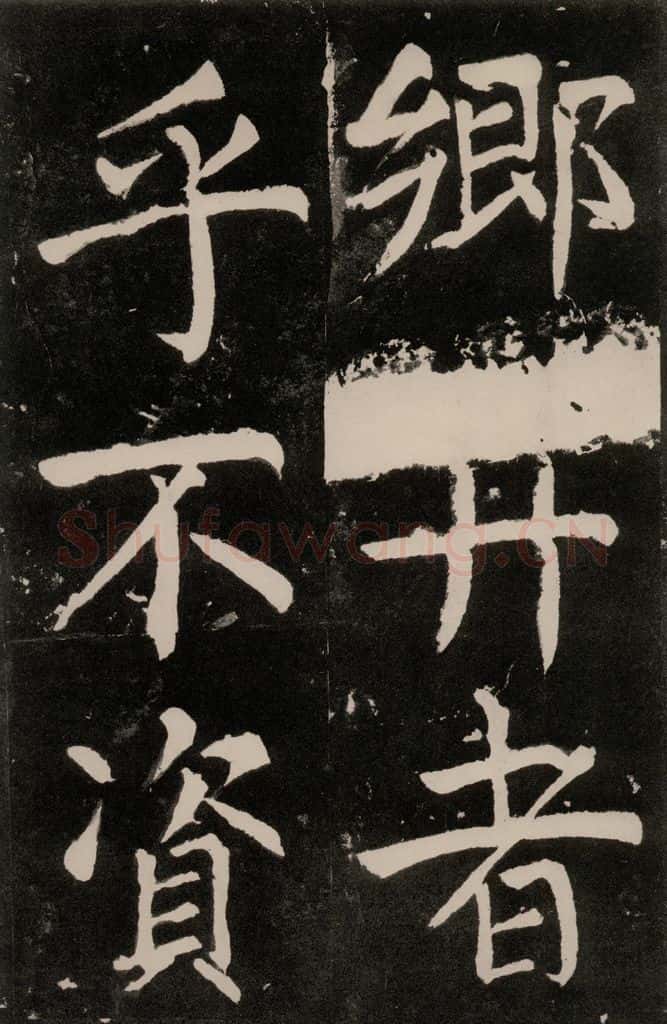 鄉井者
乎不資
Shufawang.CN